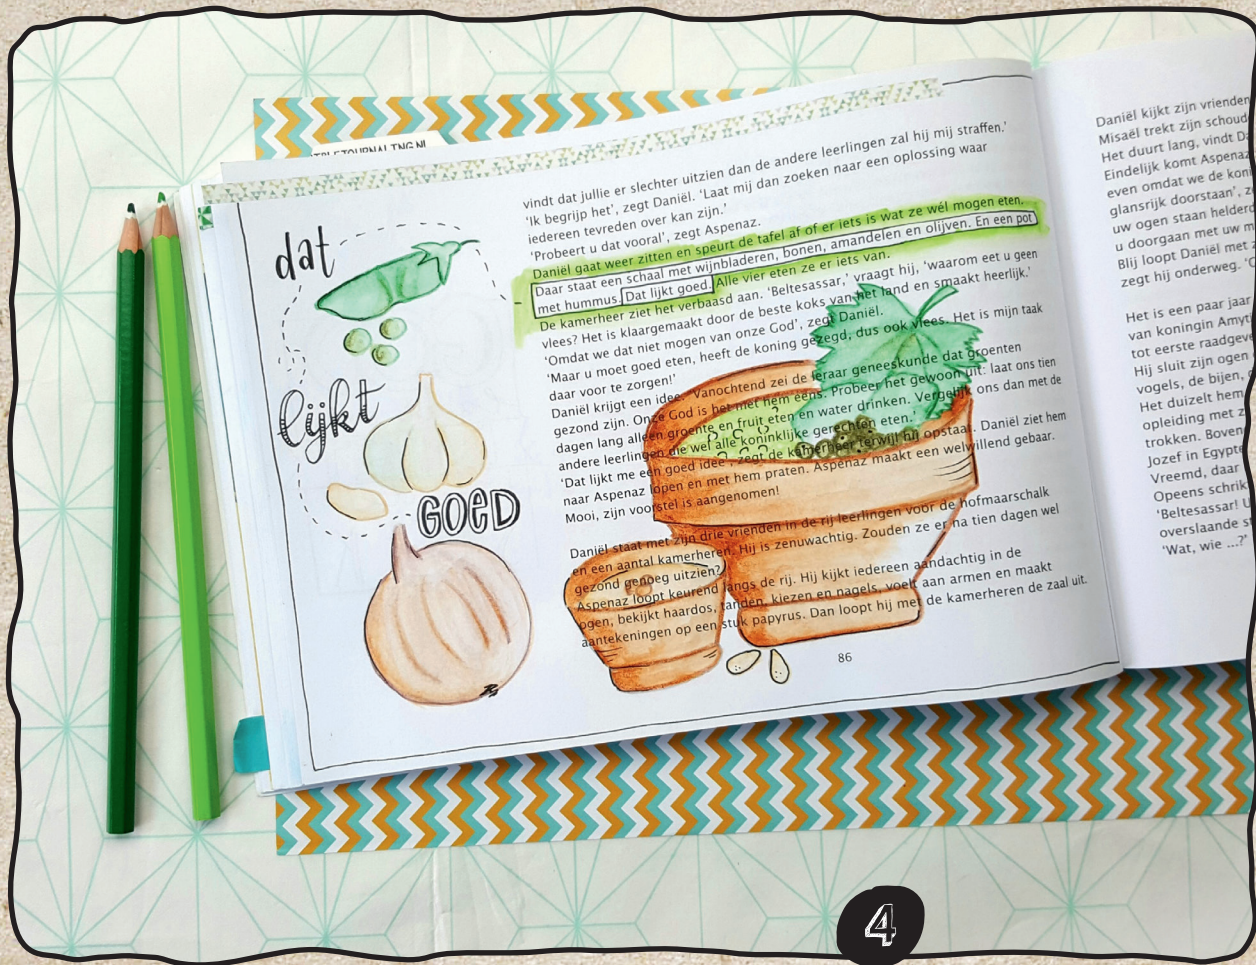 dat
lijkt
GOED
vindt dat jullie er slechter uitzien dan de andere leerlingen zal hij mij straffen.'
'Ik begrijp het', zegt Daniël. 'Laat mij dan zoeken naar een oplossing waar
iedereen tevreden over kan zijn.'
'Probeert u dat vooral', zegt Aspenaz.
Daniël gaat weer zitten en speurt de tafel af of er iets is wat ze wél mogen eten.
Daar staat een schaal met wijnbladeren, bonen, amandelen en olijven. En een pot
met hummus. Dat lijkt goed. Alle vier eten ze er iets van.
De kamerheer ziet het verbaasd aan. 'Beltesassar,' vraagt hij, 'waarom eet u geen
vlees? Het is klaargemaakt door de beste koks van het land en smaakt heerlijk.'
'Omdat we dat niet mogen van onze God', zegt Daniël.
'Maar u moet goed eten, heeft de koning gezegd, dus ook vlees. Het is mijn taak
daar voor te zorgen!'
Daniël krijgt een idee. 'Vanochtend zei de leraar geneeskunde dat groenten
gezond zijn. Onze God is het met hem eens. Probeer het gewoon uit: laat ons tien
dagen lang alleen groente en fruit eten en water drinken. Vergelijk ons dan met de
andere leerlingen die wel alle koninklijke gerechten eten.'
'Dat lijkt me een goed idee', zegt de kamerheer terwijl hij opstaat. Daniël ziet hem
naar Aspenaz lopen en met hem praten. Aspenaz maakt een welwillend gebaar.
Mooi, zijn voorstel is aangenomen!
Daniël staat met zijn drie vrienden in de rij leerlingen voor de hofmaarschalk
en een aantal kamerheren. Hij is zenuwachtig. Zouden ze er na tien dagen wel
gezond genoeg uitzien?
Aspenaz loopt keurend langs de rij. Hij kijkt iedereen aandachtig in de
ogen, bekijkt haardos, tanden, kiezen en nagels, voelt aan armen en maakt
aantekeningen op een stuk papyrus. Dan loopt hij met de kamerheren de zaal uit.
86
Daniël kijkt zijn vrienden
Misaël trekt zijn schoud
Het duurt lang, vindt Da
Eindelijk komt Aspenaz
even omdat we de kon
glansrijk doorstaan', z
uw ogen staan helder
u doorgaan met uw m
Blij loopt Daniël met
zegt hij onderweg. 'G
Het is een paar jaar
van koningin Amyt
tot eerste raadgeve
Hij sluit zijn ogen
vogels, de bijen,
Het duizelt hem
opleiding met z
trokken. Boven
Jozef in Egypte
Vreemd, daar
Opeens schrik
'Beltesassar! U
overslaande s
'Wat, wie ...?'
4